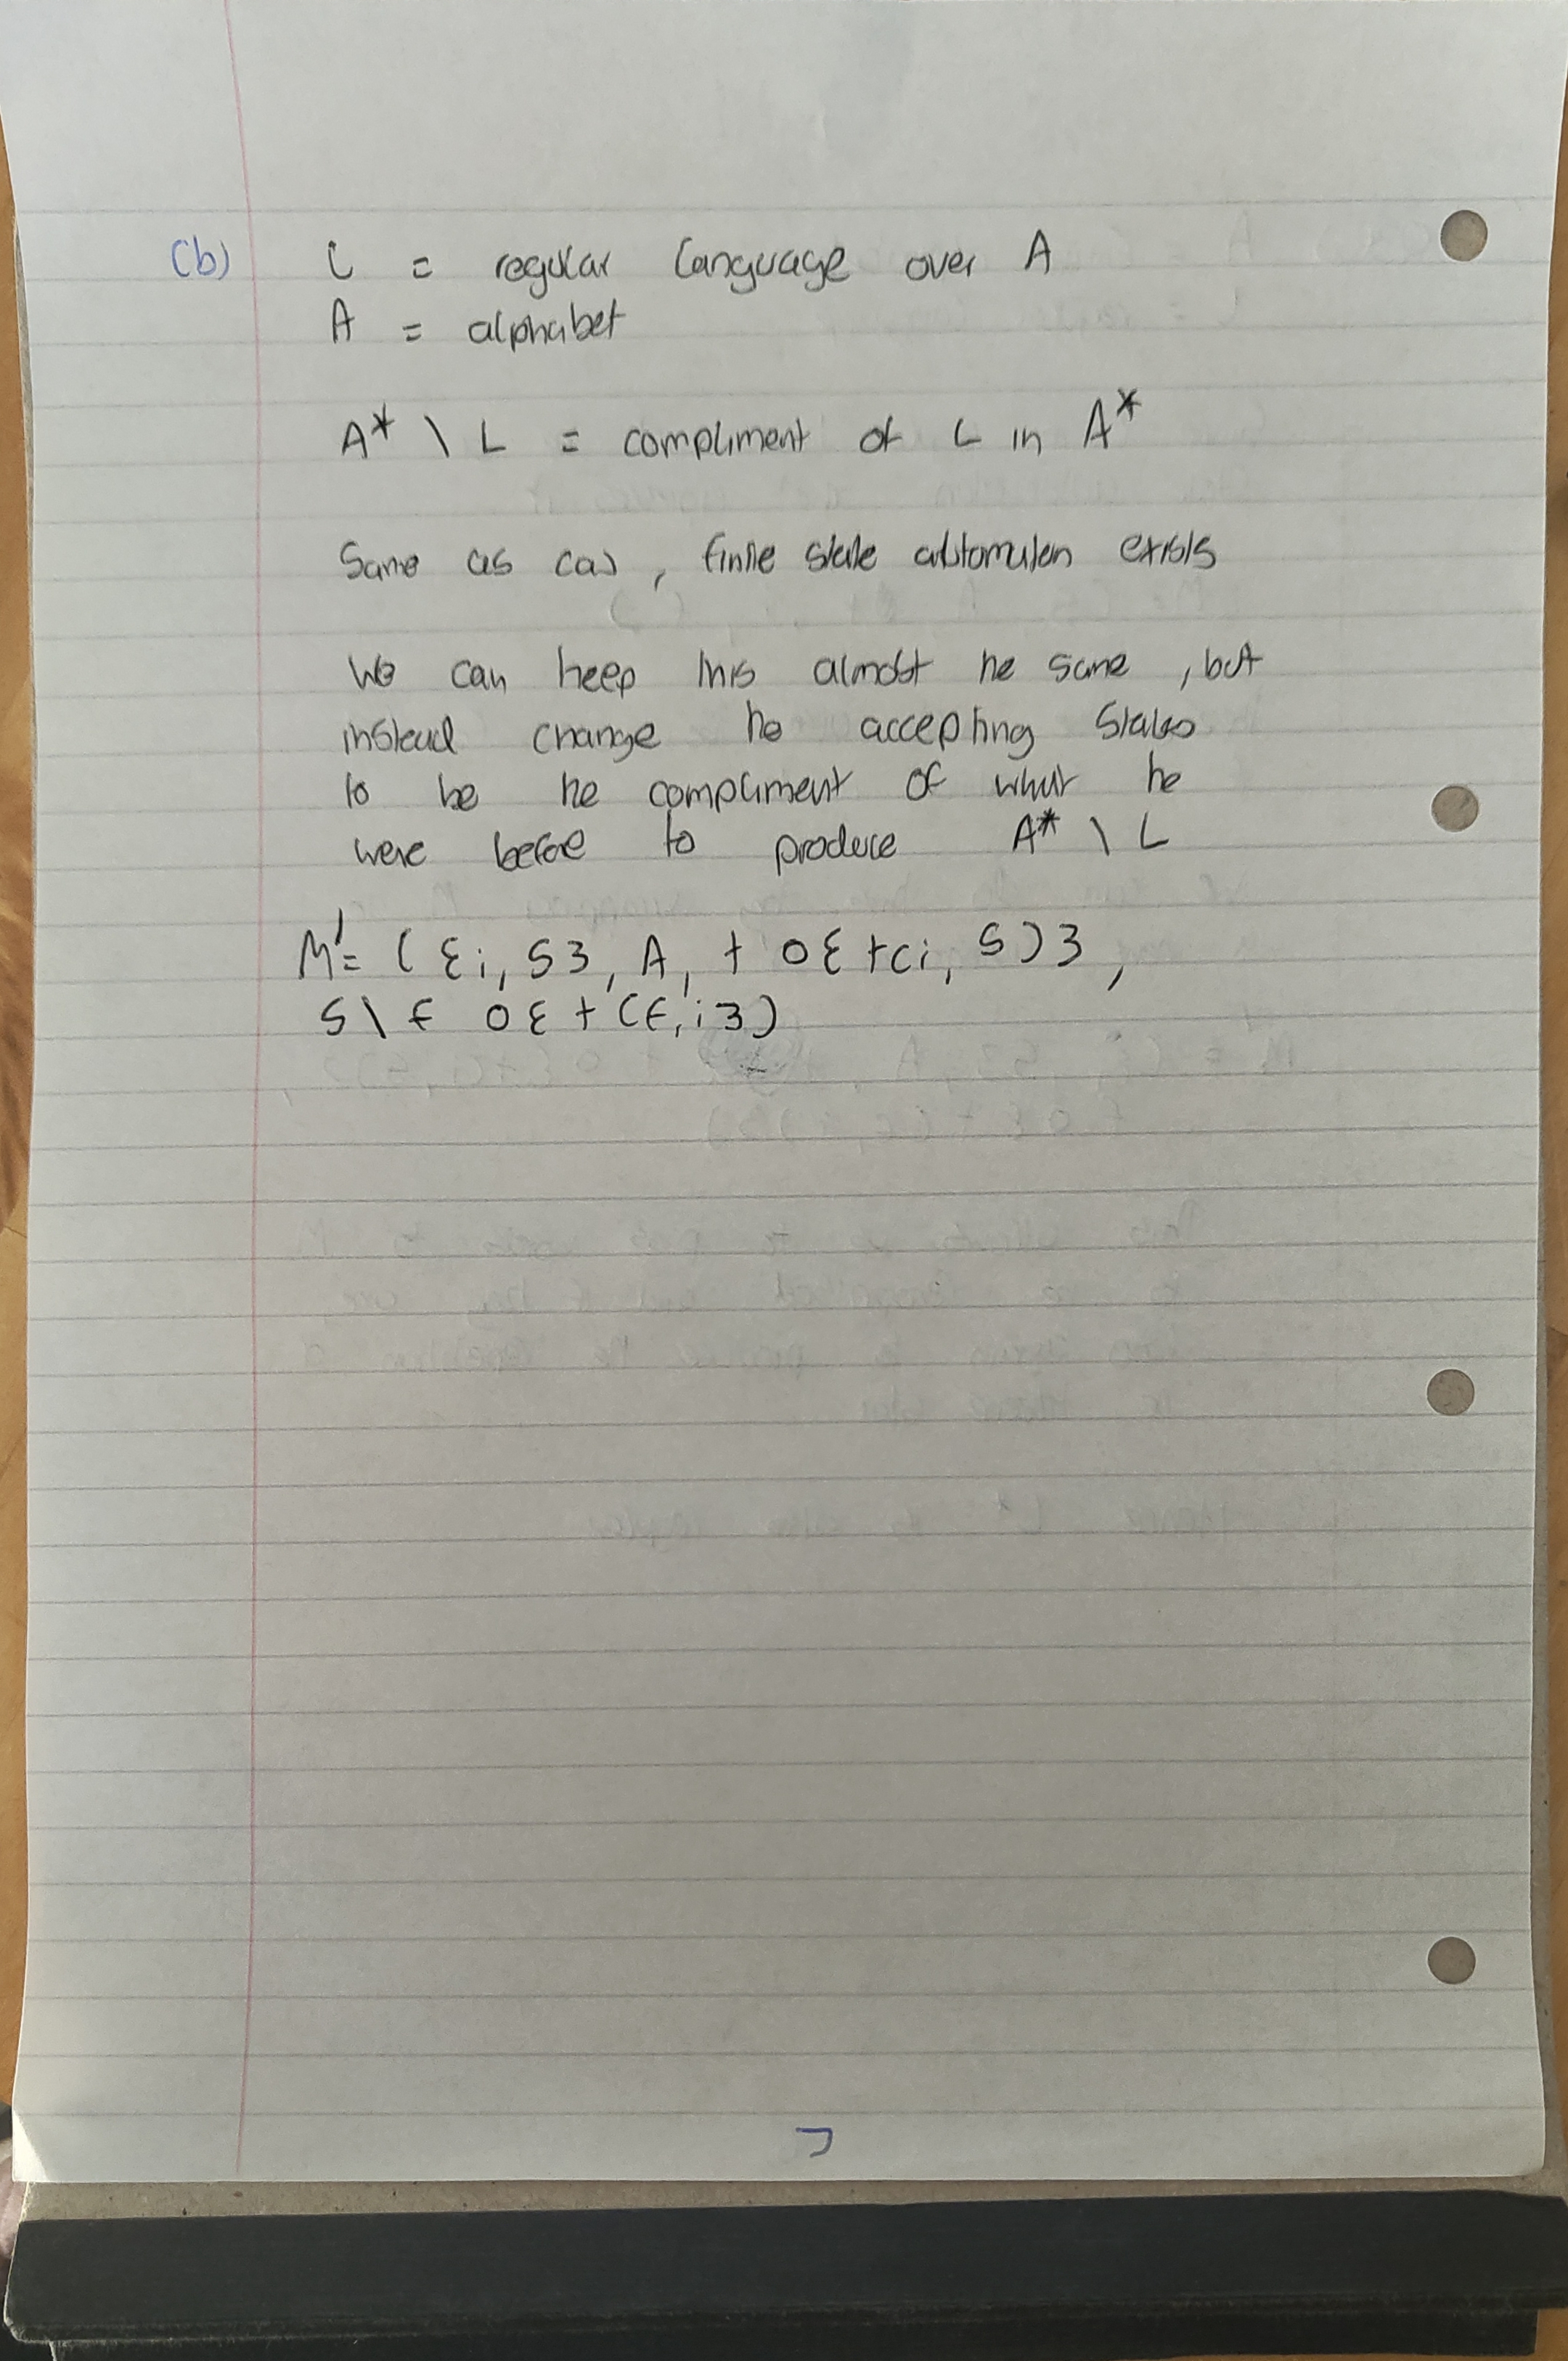 (b) L = regular language over A
A = alphabet
A* \ L = compliment of L in A*
Same as (a), finite state automaton exists
We can keep this almost he same, but
instead change he accepting states
to be he compliment of what he
were before to produce A* \ L
M' = ({i, S}, A, t ∪ {t(i, S)},
S \ F ∪ {t(F, i})
7